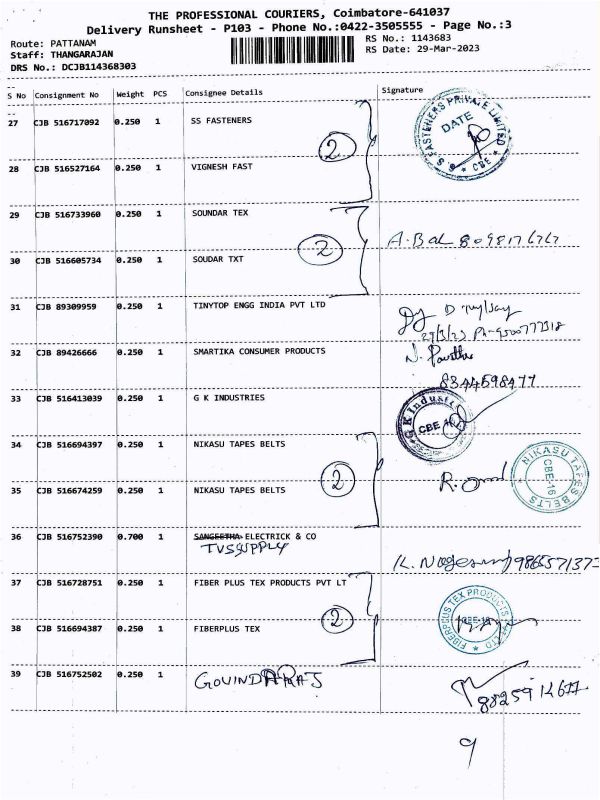 THE PROFESSIONAL COURIERS, Coimbatore-641037
Delivery Runsheet - P103 - Phone No.:0422-3505555 - Page No.:3
Route: PATTANAM
RS No.: 1143683
Staff: THANGARAJAN
RS Date: 29-Mar-2023
DRS No.: DCJB114368303
S No Consignment No Weight PCS Consignee Details Signature
27 CJB 516717092 0.250 1 SS FASTENERS
2
S S FASTENERS PRIVATE LIMITED
DATE
* CBE *
28 CJB 516527164 0.250 1 VIGNESH FAST
29 CJB 516733960 0.250 1 SOUNDAR TEX
2
A. Bal 8098176767
30 CJB 516605734 0.250 1 SOUDAR TXT
31 CJB 89309959 0.250 1 TINYTOP ENGG INDIA PVT LTD
29/3/23
32 CJB 89426666 0.250 1 SMARTIKA CONSUMER PRODUCTS
N. Pavithra
8344598477
33 CJB 516413039 0.250 1 G K INDUSTRIES
34 CJB 516694397 0.250 1 NIKASU TAPES BELTS
2
NIKASU TAPES BELTS
CBE-16
35 CJB 516674259 0.250 1 NIKASU TAPES BELTS
36 CJB 516752390 0.700 1 SANGEETHA ELECTRICK & CO
TVS SUPPLY
37 CJB 516728751 0.250 1 FIBER PLUS TEX PRODUCTS PVT LT
2
38 CJB 516694387 0.250 1 FIBERPLUS TEX
39 CJB 516752502 0.250 1 GOVINDARAJ
9